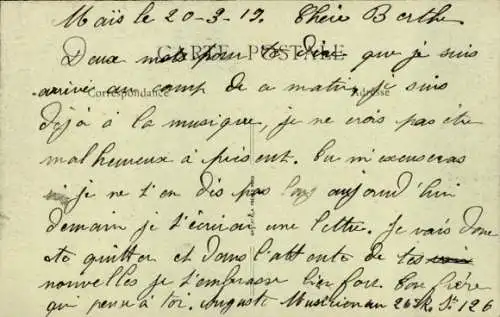 Maïs le 20-3-19. Chère Berthe
Deux mots pour te dire que je suis
CARTE POSTALE
arrivé au camp de a matin, je suis
Correspondance Adresse
déjà à la musique, je ne crois pas être
malheureux à présent. Tu m'excuseras
si je ne t'en dis pas long aujourd'hui
demain je t'écrirai une lettre. Je vais donc
te quitter et dans l'attente de tes
nouvelles je t'embrasse bien fort. Ton frère
qui pense à toi. Auguste Musicien au